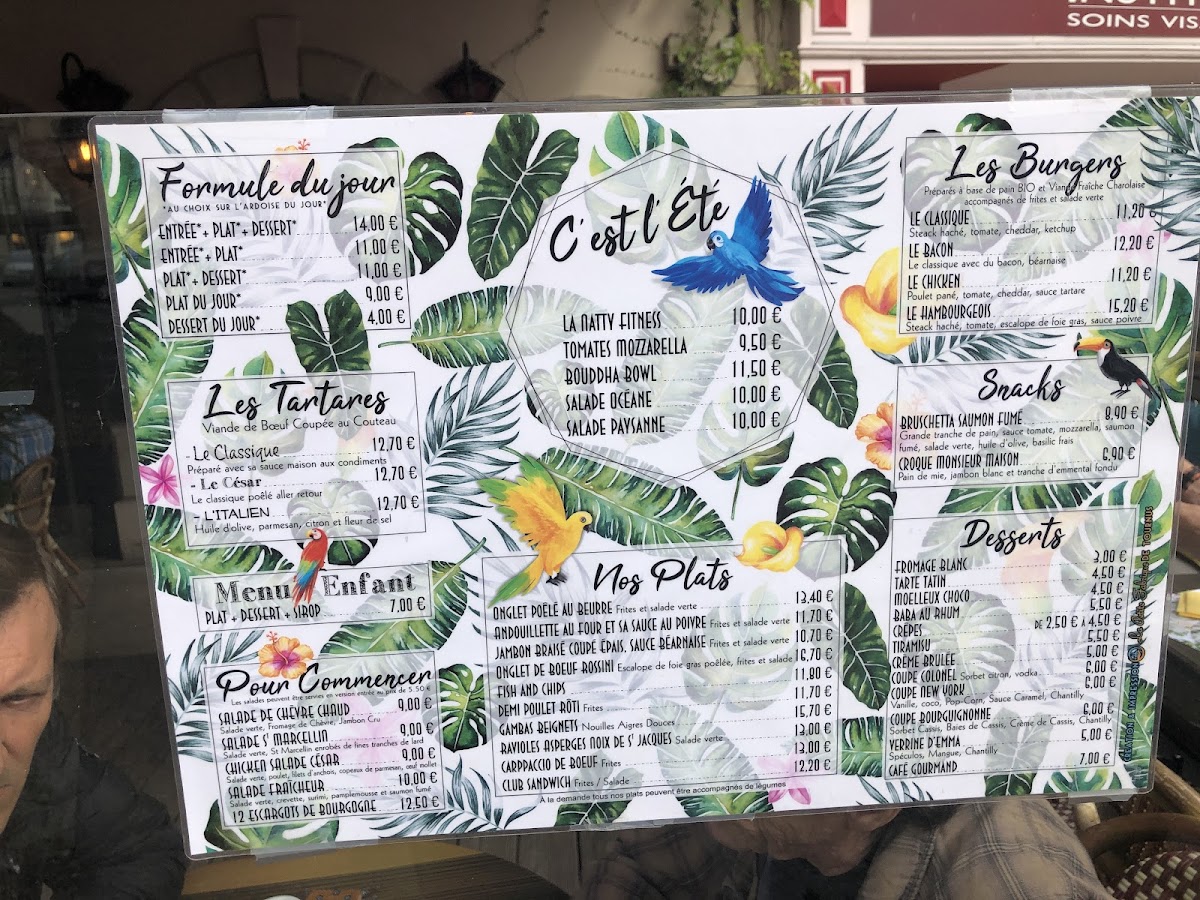 SOINS VIS
Formule du jour
*AU CHOIX SUR L'ARDOISE DU JOUR*
ENTRÉE* + PLAT* + DESSERT* 14.00 €
ENTRÉE* + PLAT* 11.00 €
PLAT* + DESSERT* 11.00 €
PLAT DU JOUR* 9,00 €
DESSERT DU JOUR* 4.00 €
Les Tartares
Viande de Bœuf Coupée au Couteau
- Le Classique 12,70 €
Préparé avec sa sauce maison aux condiments
- Le César 12,70 €
Le classique poêlé aller retour
- L'ITALIEN 12,70 €
Huile d'olive, parmesan, citron et fleur de sel
Menu Enfant
PLAT + DESSERT + SIROP 7.00 €
Pour Commencer
Les salades peuvent être servies en version entrée au prix de 5.50 €
SALADE DE CHÈVRE CHAUD 9,00 €
Salade verte, Fromage de Chèvre, Jambon Cru
SALADE S' MARCELLIN 9,00 €
Salade verte, St Marcellin enrobés de fines tranches de lard
CHICKEN SALADE CÉSAR 9.00 €
Salade verte, poulet, filets d'anchois, copeaux de parmesan, œuf mollet
SALADE FRAÎCHEUR 10.00 €
Salade verte, crevette, surimi, pamplemousse et saumon fumé
12 ESCARGOTS DE BOURGOGNE 12,50 €
C'est l'Été
LA NATTY FITNESS 10,00 €
TOMATES MOZZARELLA 9,50 €
BOUDDHA BOWL 11,50 €
SALADE OCÉANE 10.00 €
SALADE PAYSANNE 10,00 €
Nos Plats
ONGLET POÊLÉ AU BEURRE Frites et salade verte 13,40 €
ANDOUILLETTE AU FOUR ET SA SAUCE AU POIVRE Frites et salade verte 11,70 €
JAMBON BRAISE COUPÉ ÉPAIS, SAUCE BÉARNAISE Frites et salade verte 10,70 €
ONGLET DE BOEUF ROSSINI Escalope de foie gras poêlée, frites et salade 16,70 €
FISH AND CHIPS 11,80 €
DEMI POULET RÔTI Frites 11,70 €
GAMBAS BEIGNETS Nouilles Aigres Douces 15,70 €
RAVIOLES ASPERGES NOIX DE S' JACQUES Salade verte 13,00 €
CARPPACCIO DE BOEUF Frites 13,00 €
CLUB SANDWICH Frites / Salade 12,20 €
À la demande tous nos plats peuvent être accompagnés de légumes
Les Burgers
Préparés à base de pain BIO et Viande Fraîche Charolaise
accompagnés de frites et salade verte
LE CLASSIQUE 11,20 €
Steack haché, tomate, cheddar, ketchup
LE BACON 12,20 €
Le classique avec du bacon, béarnaise
LE CHICKEN 11,20 €
Poulet pané, tomate, cheddar, sauce tartare
LE HAMBOURGEOIS 15,20 €
Steack haché, tomate, escalope de foie gras, sauce poivre
Snacks
BRUSCHETTA SAUMON FUMÉ 8,90 €
Grande tranche de pain, sauce tomate, mozzarella, saumon
fumé, salade verte, huile d'olive, basilic frais
CROQUE MONSIEUR MAISON 6,90 €
Pain de mie, jambon blanc et tranche d'emmental fondu
Desserts
FROMAGE BLANC 3.00 €
TARTE TATIN 4,50 €
MOELLEUX CHOCO 4,50 €
BABA AU RHUM 5,50 €
CRÊPES DE 2.50 € À 4,50 €
TIRAMISU 5,50 €
CRÈME BRULÉE 5,00 €
COUPE COLONEL Sorbet citron, vodka 6,00 €
COUPE NEW YORK 6,00 €
Vanille, coco, Pop-Corn, Sauce Caramel, Chantilly
COUPE BOURGUIGNONNE 6,00 €
Sorbet Cassis, Baies de Cassis, Crème de Cassis, Chantilly
VERRINE D'EMMA 5,00 €
Spéculos, Mangue, Chantilly
CAFÉ GOURMAND 7,00 €